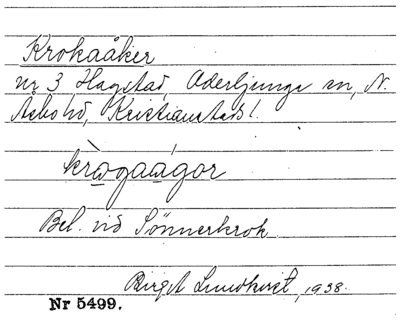 Krokaåker
nr 3 Hagstad, Oderljunga sn, N.
Åsbo hd, Kristianstads l.
krògaágor
Bel. vid Sönnerkrok
Birgit Lundkvist, 1938.
Nr 5499.